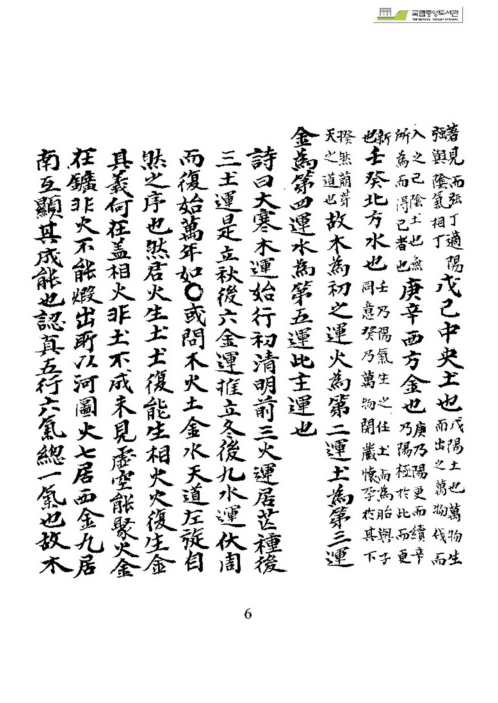 국립중앙도서관
著見而强丁適陽
强與陰氣相丁
戊己中央土也
戊陽土也萬物生
而出之萬物伐而
入之己陰土也無
所為而得己者也
庚辛西方金也
庚乃陽更而續辛
乃陽極於此而更
新
也
壬癸北方水也
壬乃陽氣生之任土而為胎與子
同意癸乃萬物閉藏懷孕於其下
揆然萌芽
天之道也
故木為初之運火為第二運土為第三運
金為第四運水為第五運此主運也
詩曰大寒木運始行初清明前三火運居芒種後
三土運是立秋後六金運推立冬後九水運伏周
而復始萬年如〇或問木火土金水天道左旋自
然之序也然君火生土土復能生相火火復生金
其義何在盖相火非土不成未見虛空能聚火金
在鑛非火不能煅出所以河圖火七居西金九居
南互顯其成能也認真五行六氣總一氣也故木
6